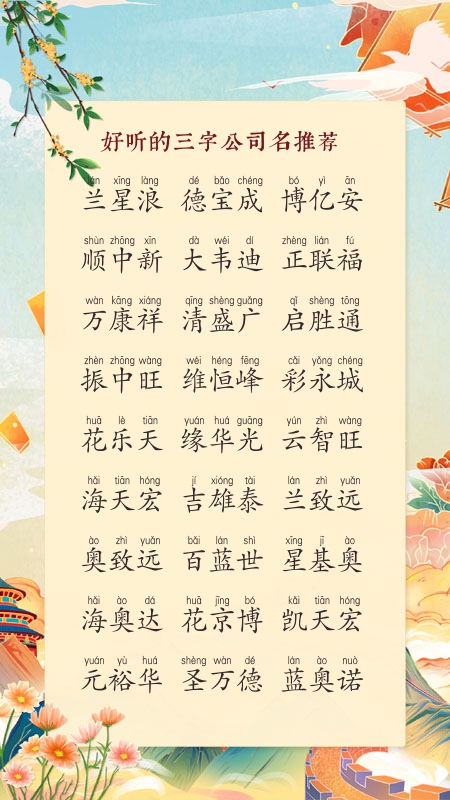 好听的三字公司名推荐
lán xīng làng dé bǎo chéng bó yì ān
兰星浪 德宝成 博亿安
shùn zhōng xīn dà wéi dí zhèng lián fú
顺中新 大韦迪 正联福
wàn kāng xiáng qīng shèng guǎng qǐ shèng tōng
万康祥 清盛广 启胜通
zhèn zhōng wàng wéi héng fēng cǎi yǒng chéng
振中旺 维恒峰 彩永城
huā lè tiān yuán huá guāng yún zhì wàng
花乐天 缘华光 云智旺
hǎi tiān hóng jí xióng tài lán zhì yuǎn
海天宏 吉雄泰 兰致远
ào zhì yuǎn bǎi lán shì xīng jī ào
奥致远 百蓝世 星基奥
hǎi ào dá huā jīng bó kǎi tiān hóng
海奥达 花京博 凯天宏
yuán yù huá shèng wàn dé lán ào nuò
元裕华 圣万德 蓝奥诺